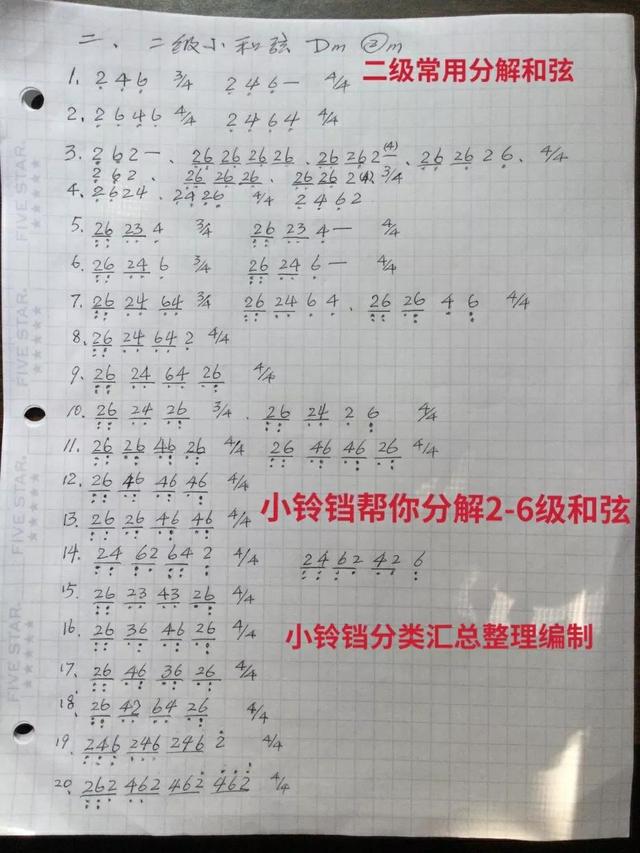 二、二级小和弦 Dm ②m
二级常用分解和弦
1. 2 4 6 3/4 2 4 6 — 4/4
2. 2 6 4 6 4/4 2 4 6 4 4/4
3. 2 6 2 — 、 26 26 26 26 、 26 26 2 — (4) 、 26 26 2 6 、 4/4
2 6 2 、 26 26 26 、 26 26 2 3/4
4. 2 6 2 4 、 24 26 4/4 2 4 6 2
5. 26 23 4 3/4 26 23 4 — 4/4
6. 26 24 6 3/4 26 24 6 — 4/4
7. 26 24 64 3/4 26 24 6 4 、 26 26 4 6 4/4
8. 26 24 64 2 4/4
9. 26 24 64 26 4/4
10. 26 24 26 3/4 、 26 24 2 6 4/4
11. 26 26 46 26 4/4 26 46 46 26 4/4
12. 26 46 46 46 4/4
13. 26 26 46 46 4/4
小铃铛帮你分解2-6级和弦
14. 24 62 64 2 4/4 24 62 42 6
15. 26 23 43 26 4/4
16. 26 36 46 26 4/4
小铃铛分类汇总整理编制
17. 26 46 36 26 4/4
18. 26 42 64 26 4/4
19. 246 246 246 2 4/4
20. 262 462 462 462 4/4
FIVE STAR.
FIVE STAR.
FIVE STAR.
FIVE STAR.